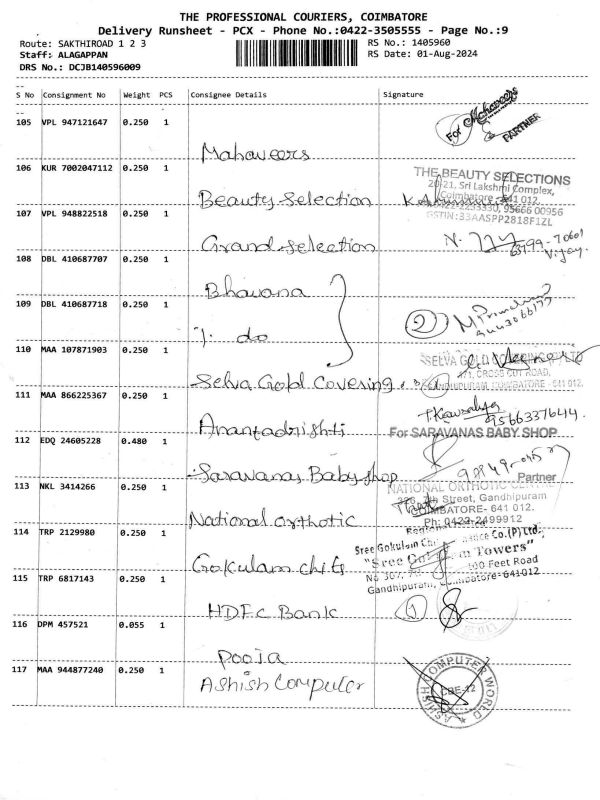 THE PROFESSIONAL COURIERS, COIMBATORE
Delivery Runsheet - PCX - Phone No.:0422-3505555 - Page No.:9
Route: SAKTHIROAD 1 2 3 RS No.: 1405960
Staff: ALAGAPPAN RS Date: 01-Aug-2024
DRS No.: DCJB140596009
S No Consignment No Weight PCS Consignee Details Signature
105 VPL 947121647 0.250 1 Mahaveers
For Mahaveers
PARTNER
106 KUR 7002047112 0.250 1 Beauty Selection
THE BEAUTY SELECTIONS
20-21, Sri Lakshmi Complex,
Coimbatore - 641 012.
95666 00956
GSTIN:33AASPP2818F1ZL
107 VPL 948822518 0.250 1 Grand Selection
Vijay.
108 DBL 410687707 0.250 1 Bhavana
109 DBL 410687718 0.250 1 do
2
110 MAA 107871903 0.250 1 Selva Gold Covering
SELVA GOLD COVERING
CROSS CUT ROAD,
GANDHIPURAM, COIMBATORE - 641 012.
111 MAA 866225367 0.250 1 Anantadrishti
9566337644
112 EDQ 24605228 0.480 1 Saravanas Baby shop
For SARAVANAS BABY SHOP
Partner
113 NKL 3414266 0.250 1 National orthotic
NATIONAL ORTHOTIC CENTRE
Street, Gandhipuram
COIMBATORE- 641 012.
Ph: 0422-2499912
114 TRP 2129980 0.250 1 Gokulam chit
Sree Gokulam Co.(P)Ltd.,
"Sree Gokulam Towers"
100 Feet Road
Gandhipuram, Coimbatore-641012
115 TRP 6817143 0.250 1 HDFC Bank
1
116 DPM 457521 0.055 1 Pooja
117 MAA 944877240 0.250 1 Ashish Computer
ASHISH COMPUTER WORLD
CBE-12